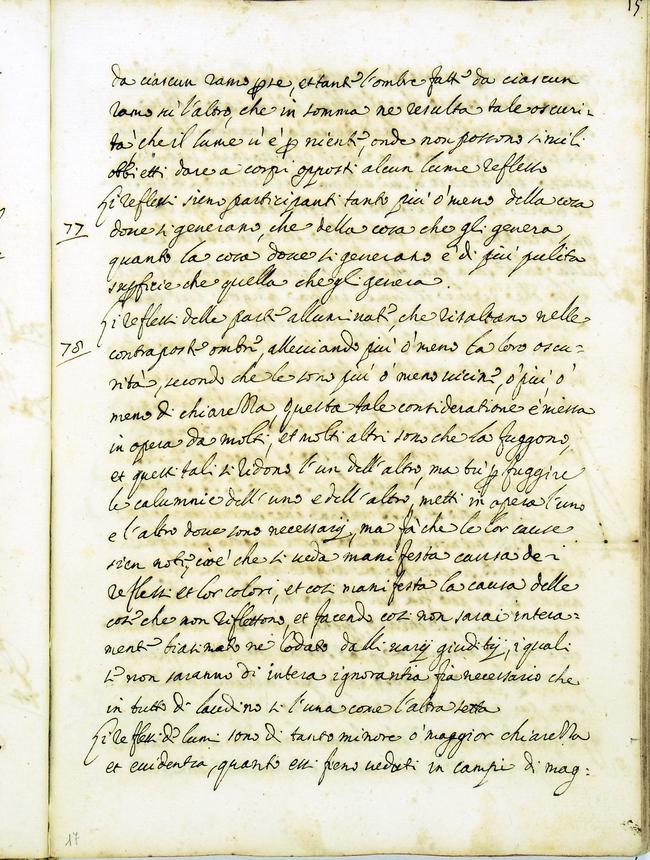 15
da ciascun ramo p se, et tant' l'ombre fatt' da ciascun
ramo sù l'altro, che in somma ne resulta tale oscuri=
tà che il lume ù è p nient', onde non possono simili
obbietti dare a corpi opposti alcun lume reflesso
Gi reflessi sieno participanti tanto più ò meno della cosa
77
doue si generano, che della cosa che gli genera,
quanto la cosa doue si generano è di più pulita
supficie che quella che gli genera.
Gi reflessi delle part' alluminat', che risaltano nelle
78
contrapost' ombr', alleuiando più ò meno la loro oscu=
rità, secondo che le sono più ò meno uicin', ò più ò
meno di chiarezza, questa tale consideratione è messa
in opera da molti, et molti altri sono che la fuggono,
et questi tali si ridono l'un dell'altro, ma tù p fuggire
le calumnie dell'uno e dell'altro, metti in opera l'uno
e l'altro doue sono necessarij, ma fà che le lor cause
sien not', cioè che si ueda manifesta causa de i
reflessi et lor colori, et così manifesta la causa delle
cos' che non riflettono, et facendo così non sarai intera=
ment' biasimato nè lodato dalli uarij giuditij, i quali
s' non saranno di intera ignorantia fia necessario che
in tutto ti laudino sì l'una come l'altra setta
Gi reflessi d' lumi sono di tanto minore ò maggior chiarezza
et euidentia, quanto essi fieno ueduti in campi di mag=
17